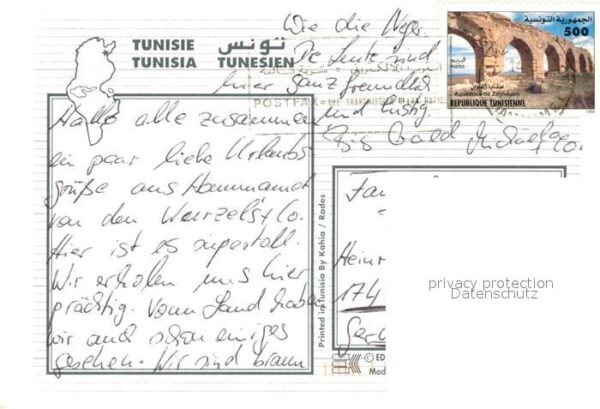 TUNISIE تونس
TUNISIA TUNESIEN
Hallo alle zusammen
ein paar liebe Urlaubs
grüße aus Hammamet
von den Wurzels + Co.
Hier ist es supertoll.
Wir erholen uns hier
prächtig. Vom Land haben
wir auch schon einiges
gesehen. Wir sind braun
Wie die Neger.
Die Leute sind
hier ganz freundlich
und lustig.
Bis bald
Co.
الجمهورية التونسية
500
البريد
POSTES
Aqueduc de Zaghouan
REPUBLIQUE TUNISIENNE
POSTFAX
Printed in Tunisia By Kahia / Rades
Fa
Heinr
174
Ger
© ED
Mod
privacy protection
Datenschutz